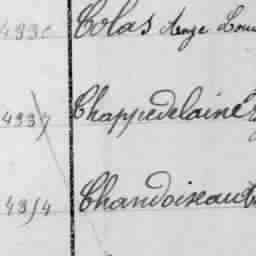 Colas Ange Loui
4937 Chappedelaine
4314 Chandoiseau